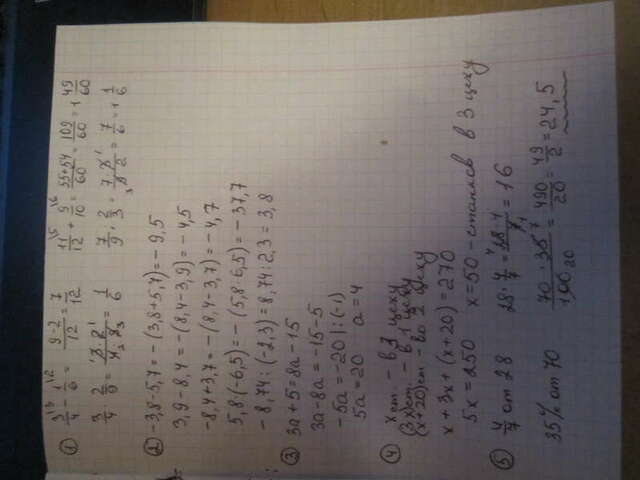 ① 3/4 \3 - 1/6 \2 = 9-2/12 = 7/12   11/12 \5 + 9/10 \6 = 55+54/60 = 109/60 = 1 49/60
3/4 · 2/9 = 3·2/4·9 = 1/6   7/9 : 2/3 = 7·3/9·2 = 7/6 = 1 1/6
② -3,8-5,7 = -(3,8+5,7) = -9,5
3,9-8,4 = -(8,4-3,9) = -4,5
-8,4+3,7 = -(8,4-3,7) = -4,7
5,8·(-6,5) = -(5,8·6,5) = -37,7
-8,74:(-2,3) = 8,74:2,3 = 3,8
③ 3a+5=8a-15
3a-8a = -15-5
-5a = -20 |:(-1)
5a = 20   a = 4
④ x ст. - в 3 цеху
(3x) ст. - в 1 цеху
(x+20) ст - во 2 цеху
x + 3x + (x+20) = 270
5x = 250   x = 50 - станков в 3 цеху
⑤ 4/7 от 28   28 · 4/7 = 28·4/7 = 16
35% от 70   70·35/100 = 490/20 = 49/2 = 24,5